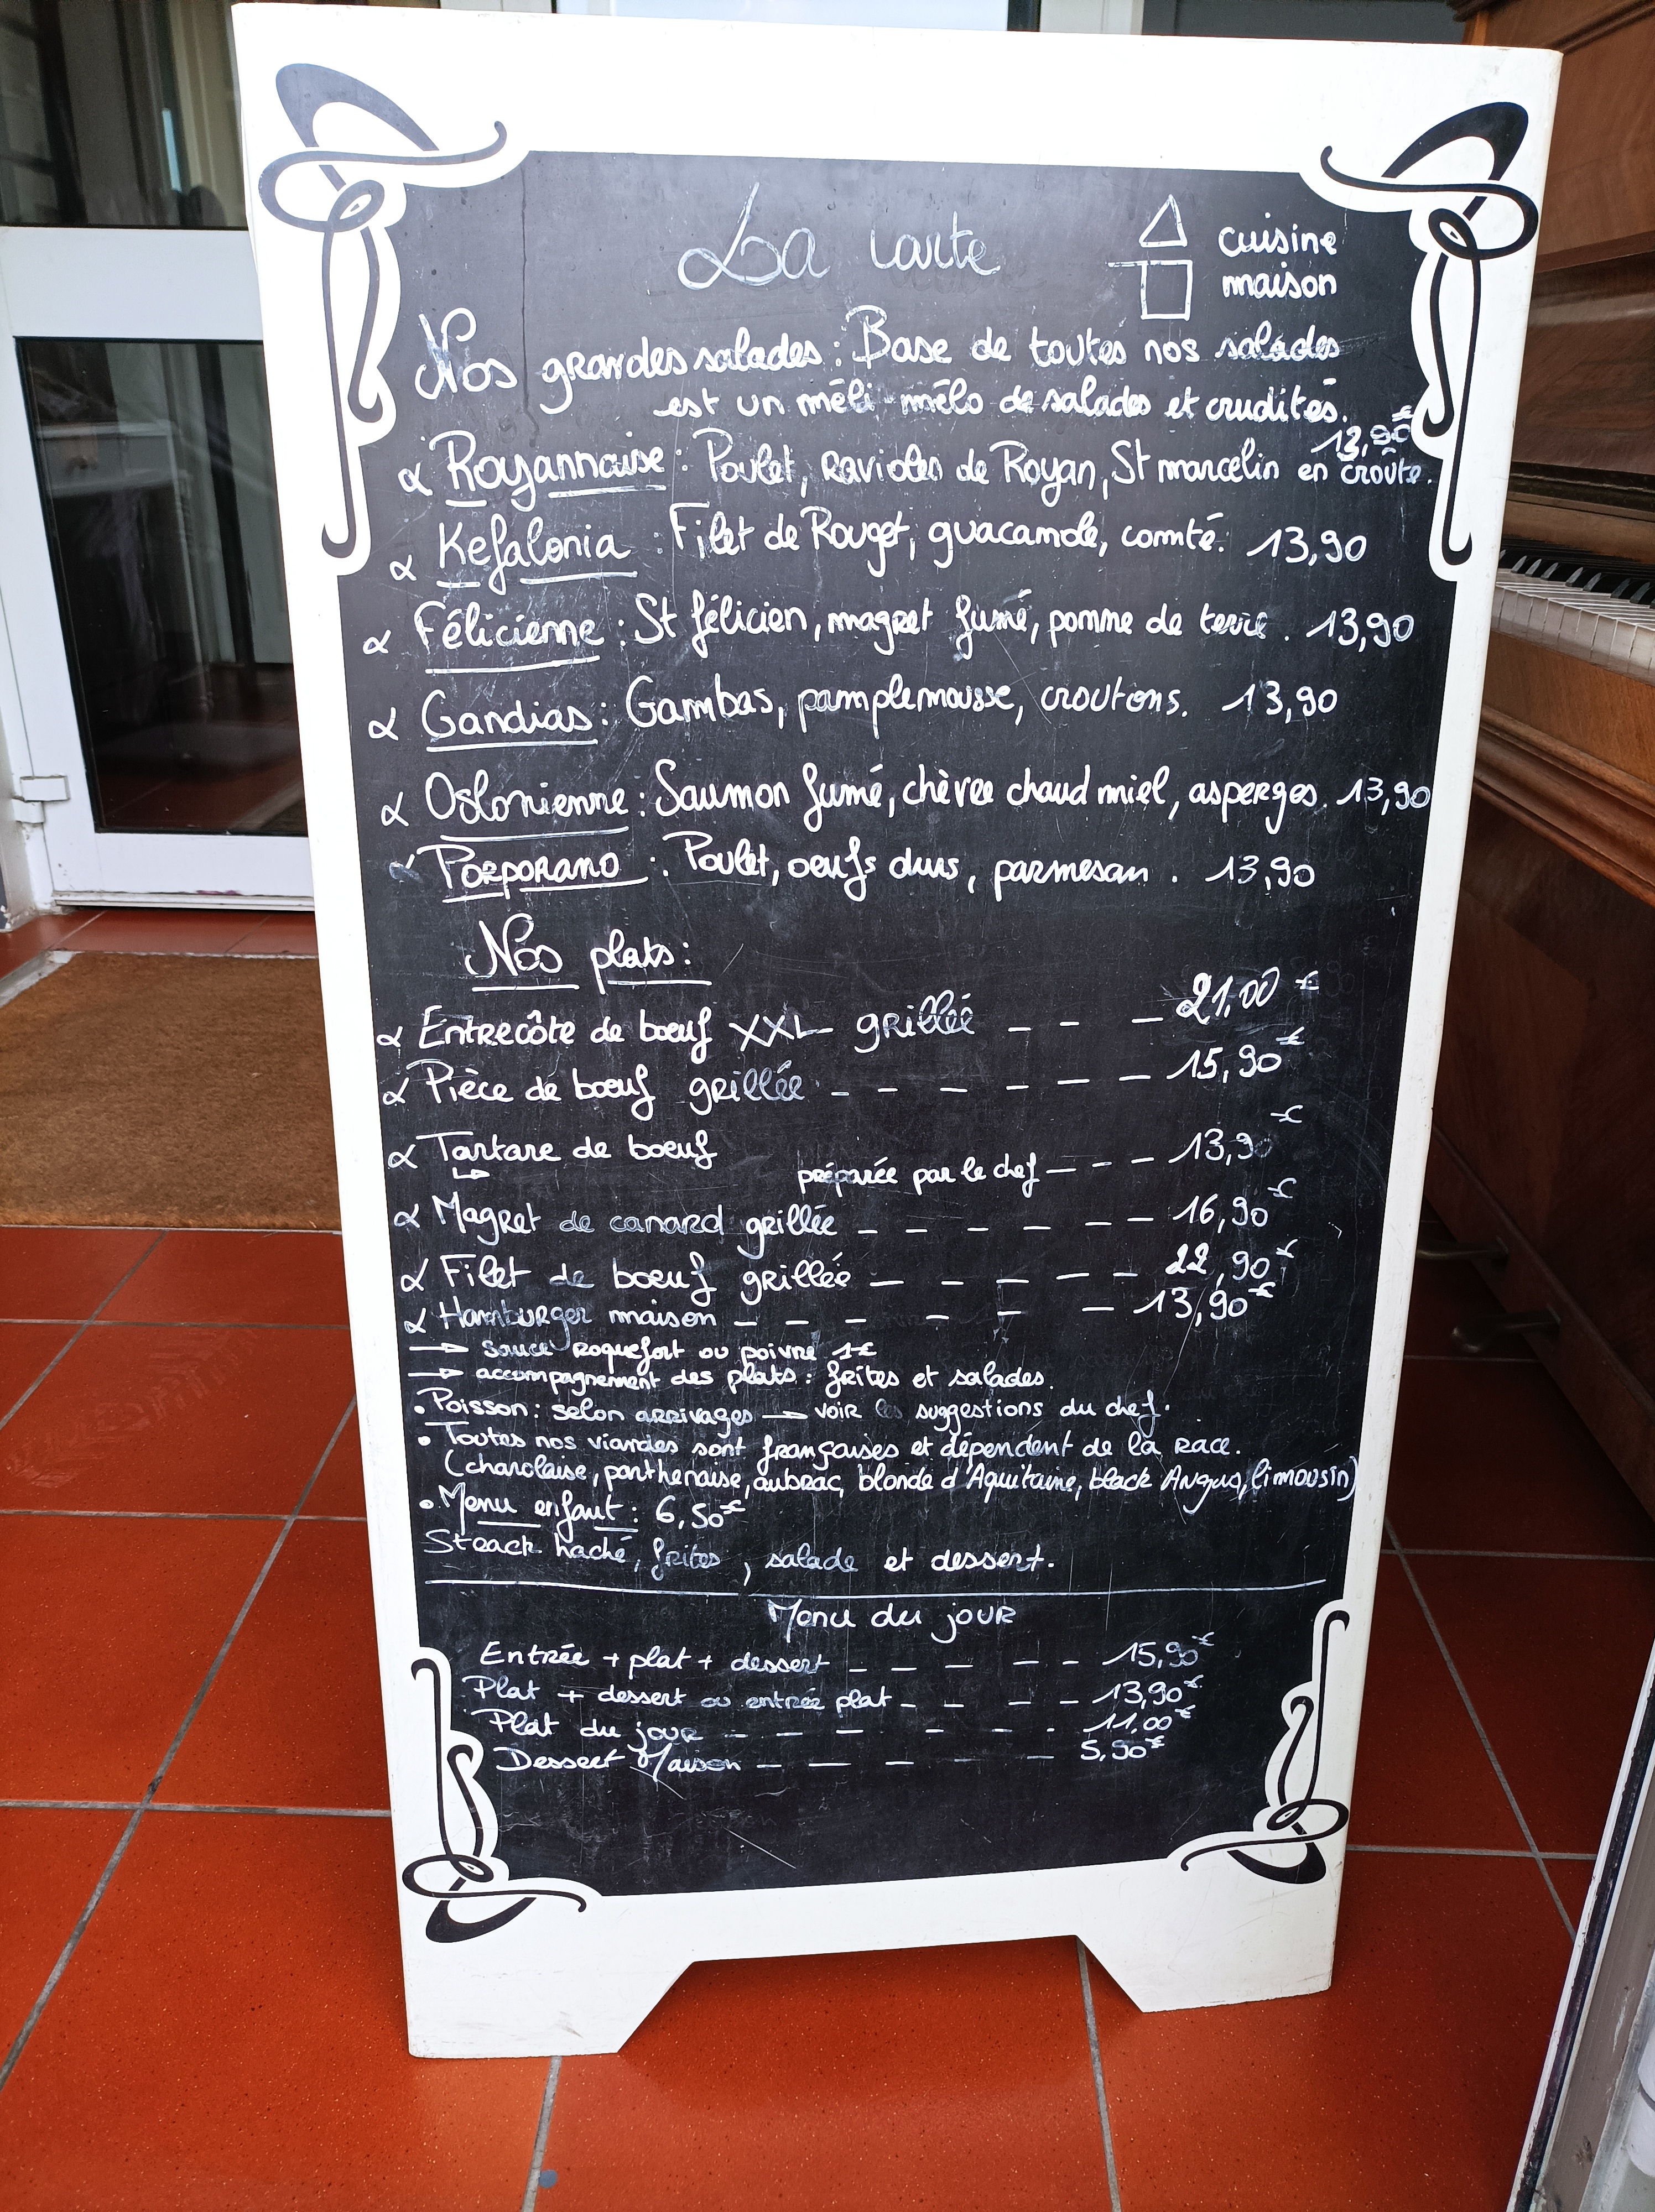 La carte
cuisine
maison
Nos grandes salades : Base de toutes nos salades
est un méli-mélo de salades et crudités.
13,90€
α Royannaise : Poulet, ravioles de Royan, St marcelin en croûte.
α Kefalonia : Filet de Rouget, guacamole, comté. 13,90
α Félicienne : St félicien, magret fumé, pomme de terre. 13,90
α Gandias : Gambas, pamplemousse, croutons. 13,90
α Oslonienne : Saumon fumé, chèvre chaud miel, asperges. 13,90
α Porporano : Poulet, oeufs durs, parmesan. 13,90
Nos plats :
α Entrecôte de boeuf XXL grillée - - - 21,00 €
α Pièce de boeuf grillée - - - - - - 15,90 €
α Tartare de boeuf
↳ préparée par le chef - - - 13,90 €
α Magret de canard grillée - - - - - - 16,90 €
α Filet de boeuf grillée - - - - - 22,90 €
α Hamburger maison - - - - - - 13,90 €
→ sauce roquefort ou poivre 1€
→ accompagnement des plats : frites et salades.
• Poisson : selon arrivages → voir les suggestions du chef.
• Toutes nos viandes sont françaises et dépendent de la race.
(charolaise, parthenaise, aubrac, blonde d'Aquitaine, black Angus, limousin)
• Menu enfant : 6,50€
Steack haché, frites, salade et dessert.
Menu du jour
Entrée + plat + dessert - - - - - 15,90€
Plat + dessert ou entrée plat - - - - 13,90€
Plat du jour - - - - - - - 11,00€
Dessert Maison - - - - - 5,90€